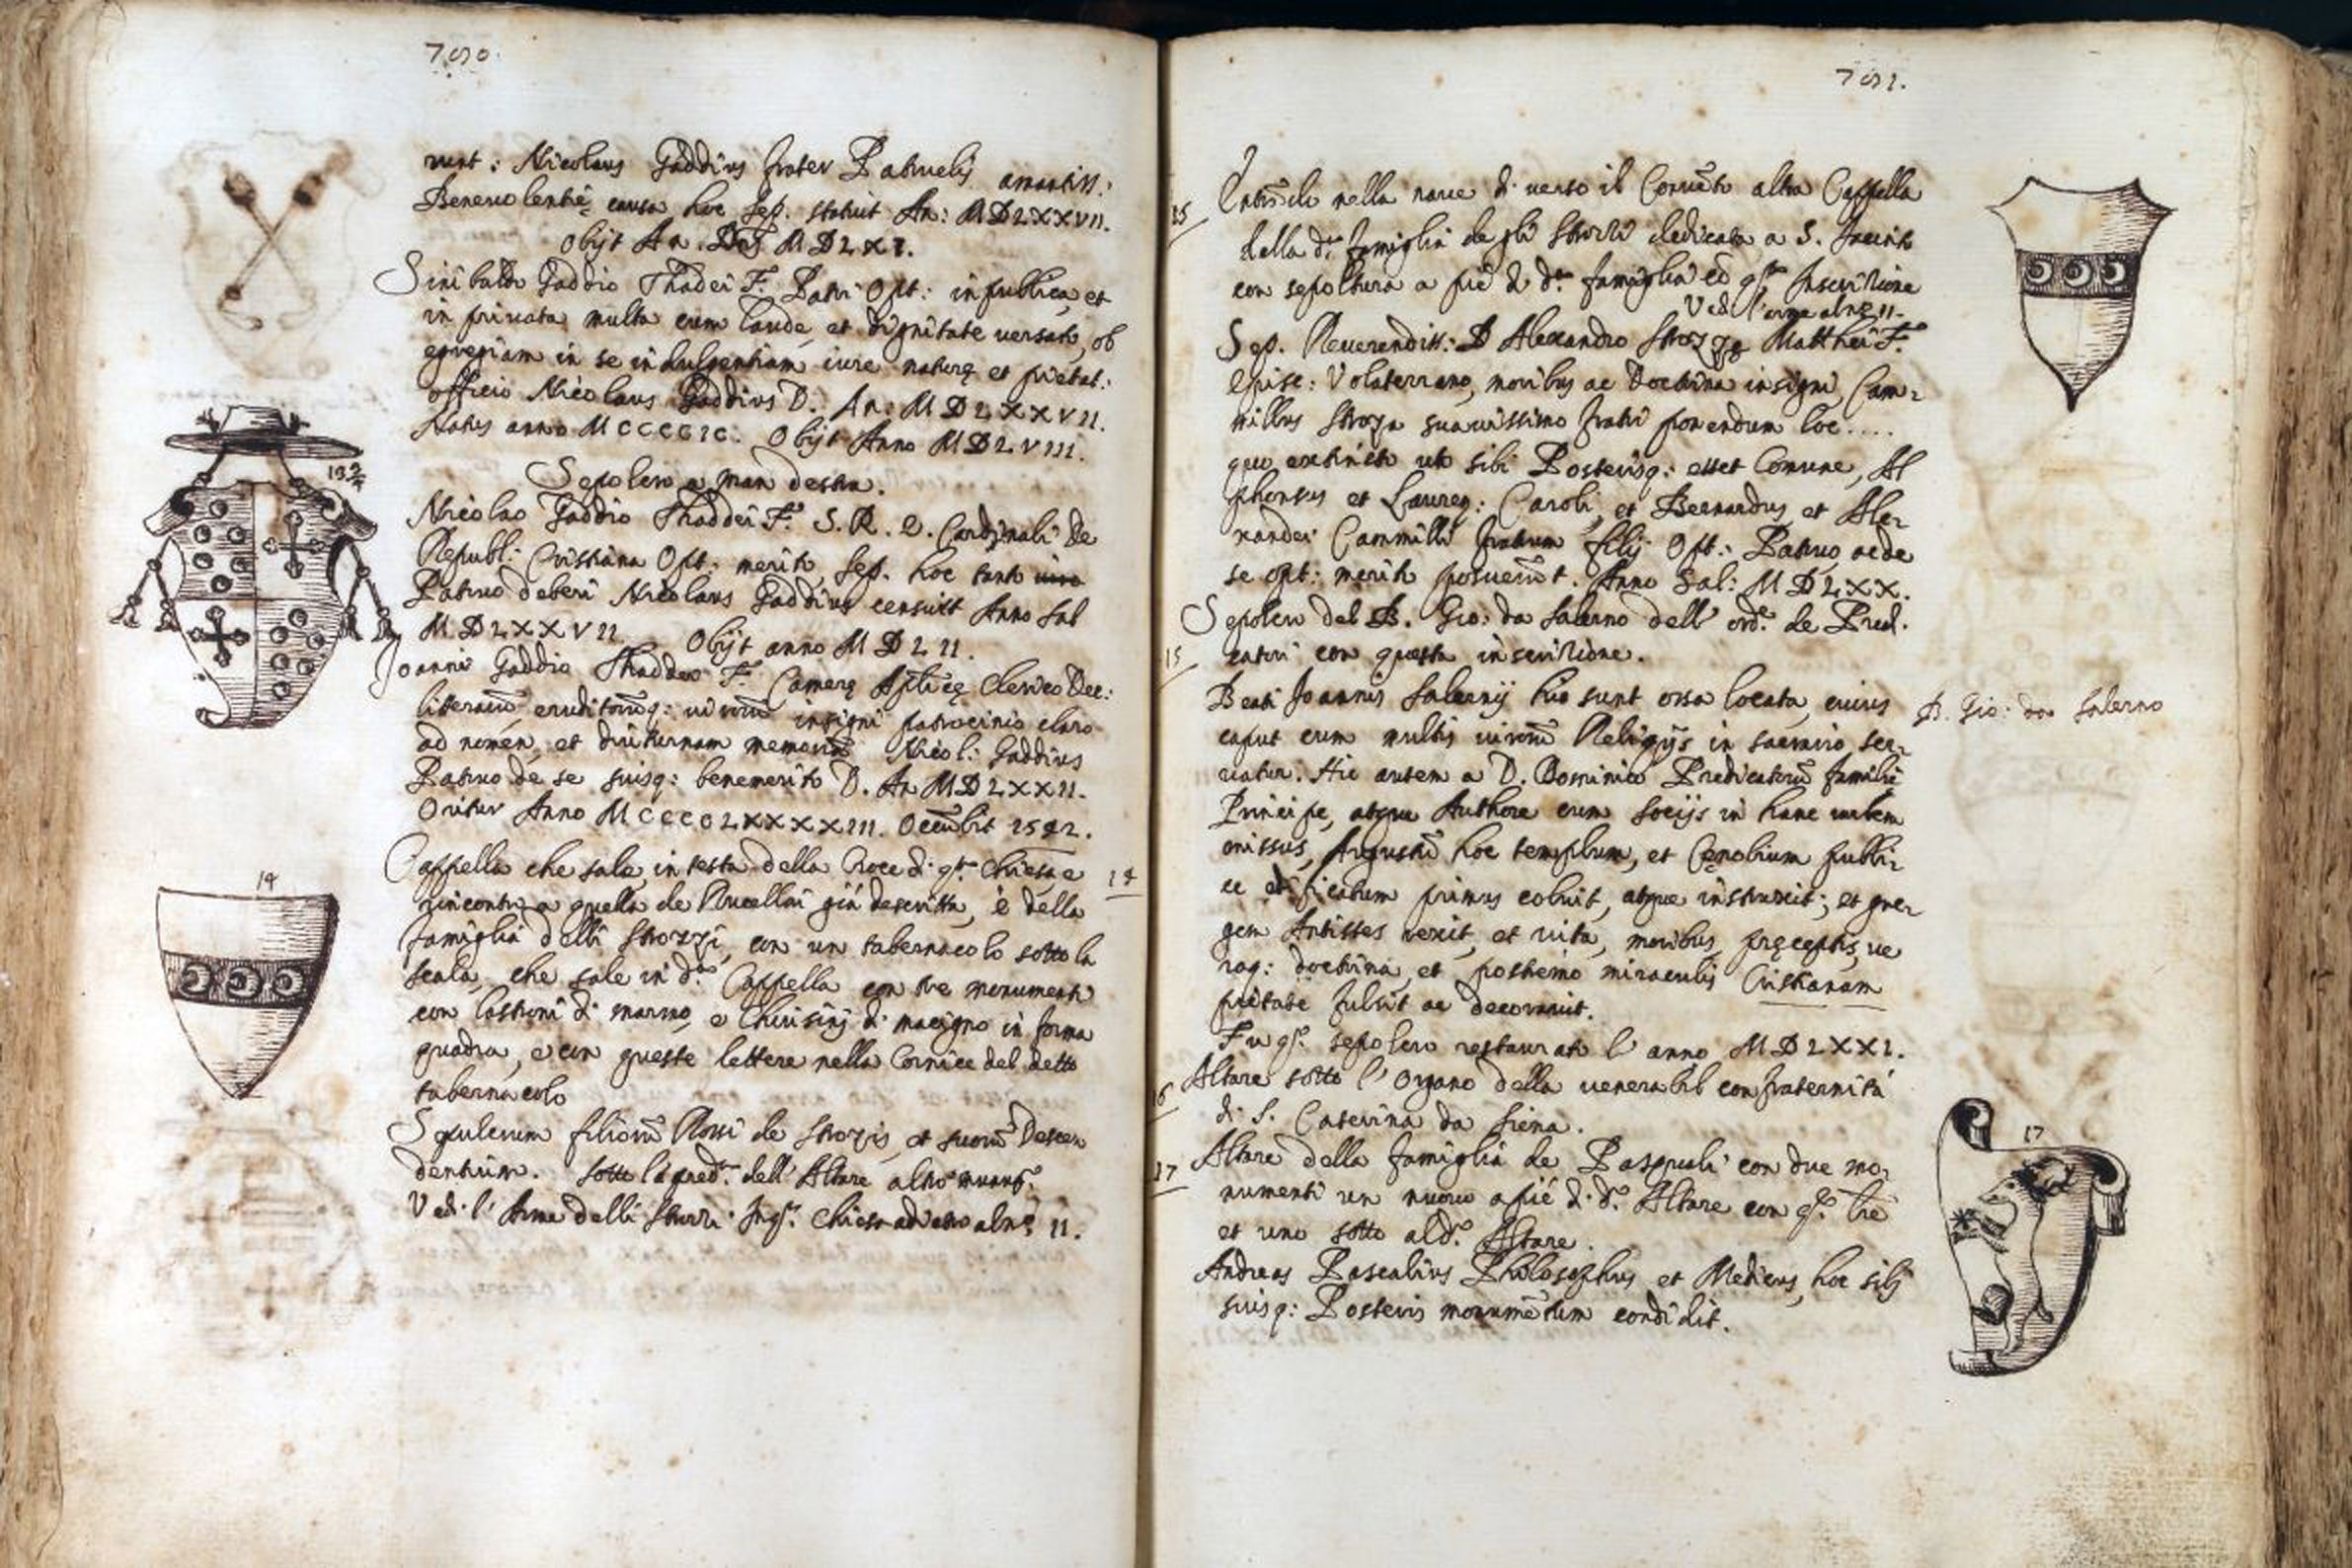 7090.
runt: Nicolaus Gaddius frater Patruelis amantiss:
Benevolentię causa hoc Sep. statuit An: MDLXXVII.
Obijt An. MDLXI.
Sinibaldo Gaddio Thadei F. Patri Opt: in publica, et
in privata multa cum laude, et dignitate versato, ob
egregiam in se indulgentiam iure naturę et pietat:
officio Nicolaus Gaddius D. An: MDLXXVII.
Natus anno MCCCCIC. Obijt Anno MDLVIII.
Sepolcro a man destra.
13
Nicolao Gaddio Thaddei F. S. R. E. Cardinali De
Republ: Cristiana Opt: merito Sep. hoc tanto
Patruo deberi Nicolaus Gaddius censuit Anno Sal
MDLXXVII Obijt anno MDLII.
Joanni Gaddio Thaddeo F. Camerę Aplicę Clerico Dec:
literarū eruditorūq: virorū insigni patrocinio claro
ad nomen, et diuturnam memoriā Nicol: Gaddius
Patruo de se suisq: benemerito D. An MDLXXII.
Oritur Anno MCCCCLXXXXIII. Occūbit 1542.
Cappella che sale in testa della Croce di qta Chiesa e 14
rincontro a quella de Rucellai già descritta, è della
14
famiglia delli Strozzi, con un tabernacolo sotto la
scala, che sale in da Cappella con tre monumenti
con lastroni di marmo, e Chiusini di macigno in forma
quadra, e con queste lettere nella Cornice del detto
tabernacolo
Sepulcrum filiorū Rossi de Strozis, et suorū Descen
dentium. sotto la pred. dell' Altare altro
Vedi l' Arme delli Strozzi Chiesa adietro al no 11.
7091.
15 Entrādo nella nave di verso il Convēto altra Cappella
della da famiglia degli Strozzi dedicata a S. Iacinto
con sepoltura a piè di da famiglia cō qta Inscrizione
Vedi l'arme al no 11.
Sep. Reverendiss: D Alexandro Strozzę Matthei F.
Episc: Volaterrano, moribus ac Doctrina insigni, Cam-
millus Stroza suavissimo fratri ponendum loc....
quo extincto ut sibi Posterisq: esset Comune, Al
phonsus et Laureq: Caroli, et Bernardus et Ale-
xander Cammilli fratrum filij Opt: Patruo, ac de
se opt: merito posuerūt. Anno Sal: MDLXX.
15 Sepolcro del B. Gio: da Salerno dell' ord.e de Pred.
catori con questa inscrizione.
Beati Joannis Salernij hic sunt ossa locata, cuius B. Gio: da Salerno
caput cum multis virorū Reliqijs in sacrario ser-
vatur. Hic autem a D. Dominico Predicatorū familię
Principe, atque Authore cum socijs in hanc urbem
missus, Augustū hoc templum, et Cęnobium publi-
ce edificatum primus coluit, atque instruxit; et gre-
gem Antistes rexit, et vita, moribus, pręceptis, ve
raq: doctrina, et postremo miraculis Cristianam
pietate fulsit ac decoravit.
Fu qo sepolcro restaurato l' anno MDLXXI.
16 Altare sotto l' Organo della venerabil confraternità
di S. Caterina da Siena.
17 Altare della famiglia de Pasquali con due mo-
numenti un nuovo a piè di do Altare con qe lre
17
et uno sotto al do Altare.
Andreas Pascalius Philosophus et Medicus, hoc sibj
suisq: Posteris monumētum condidit.